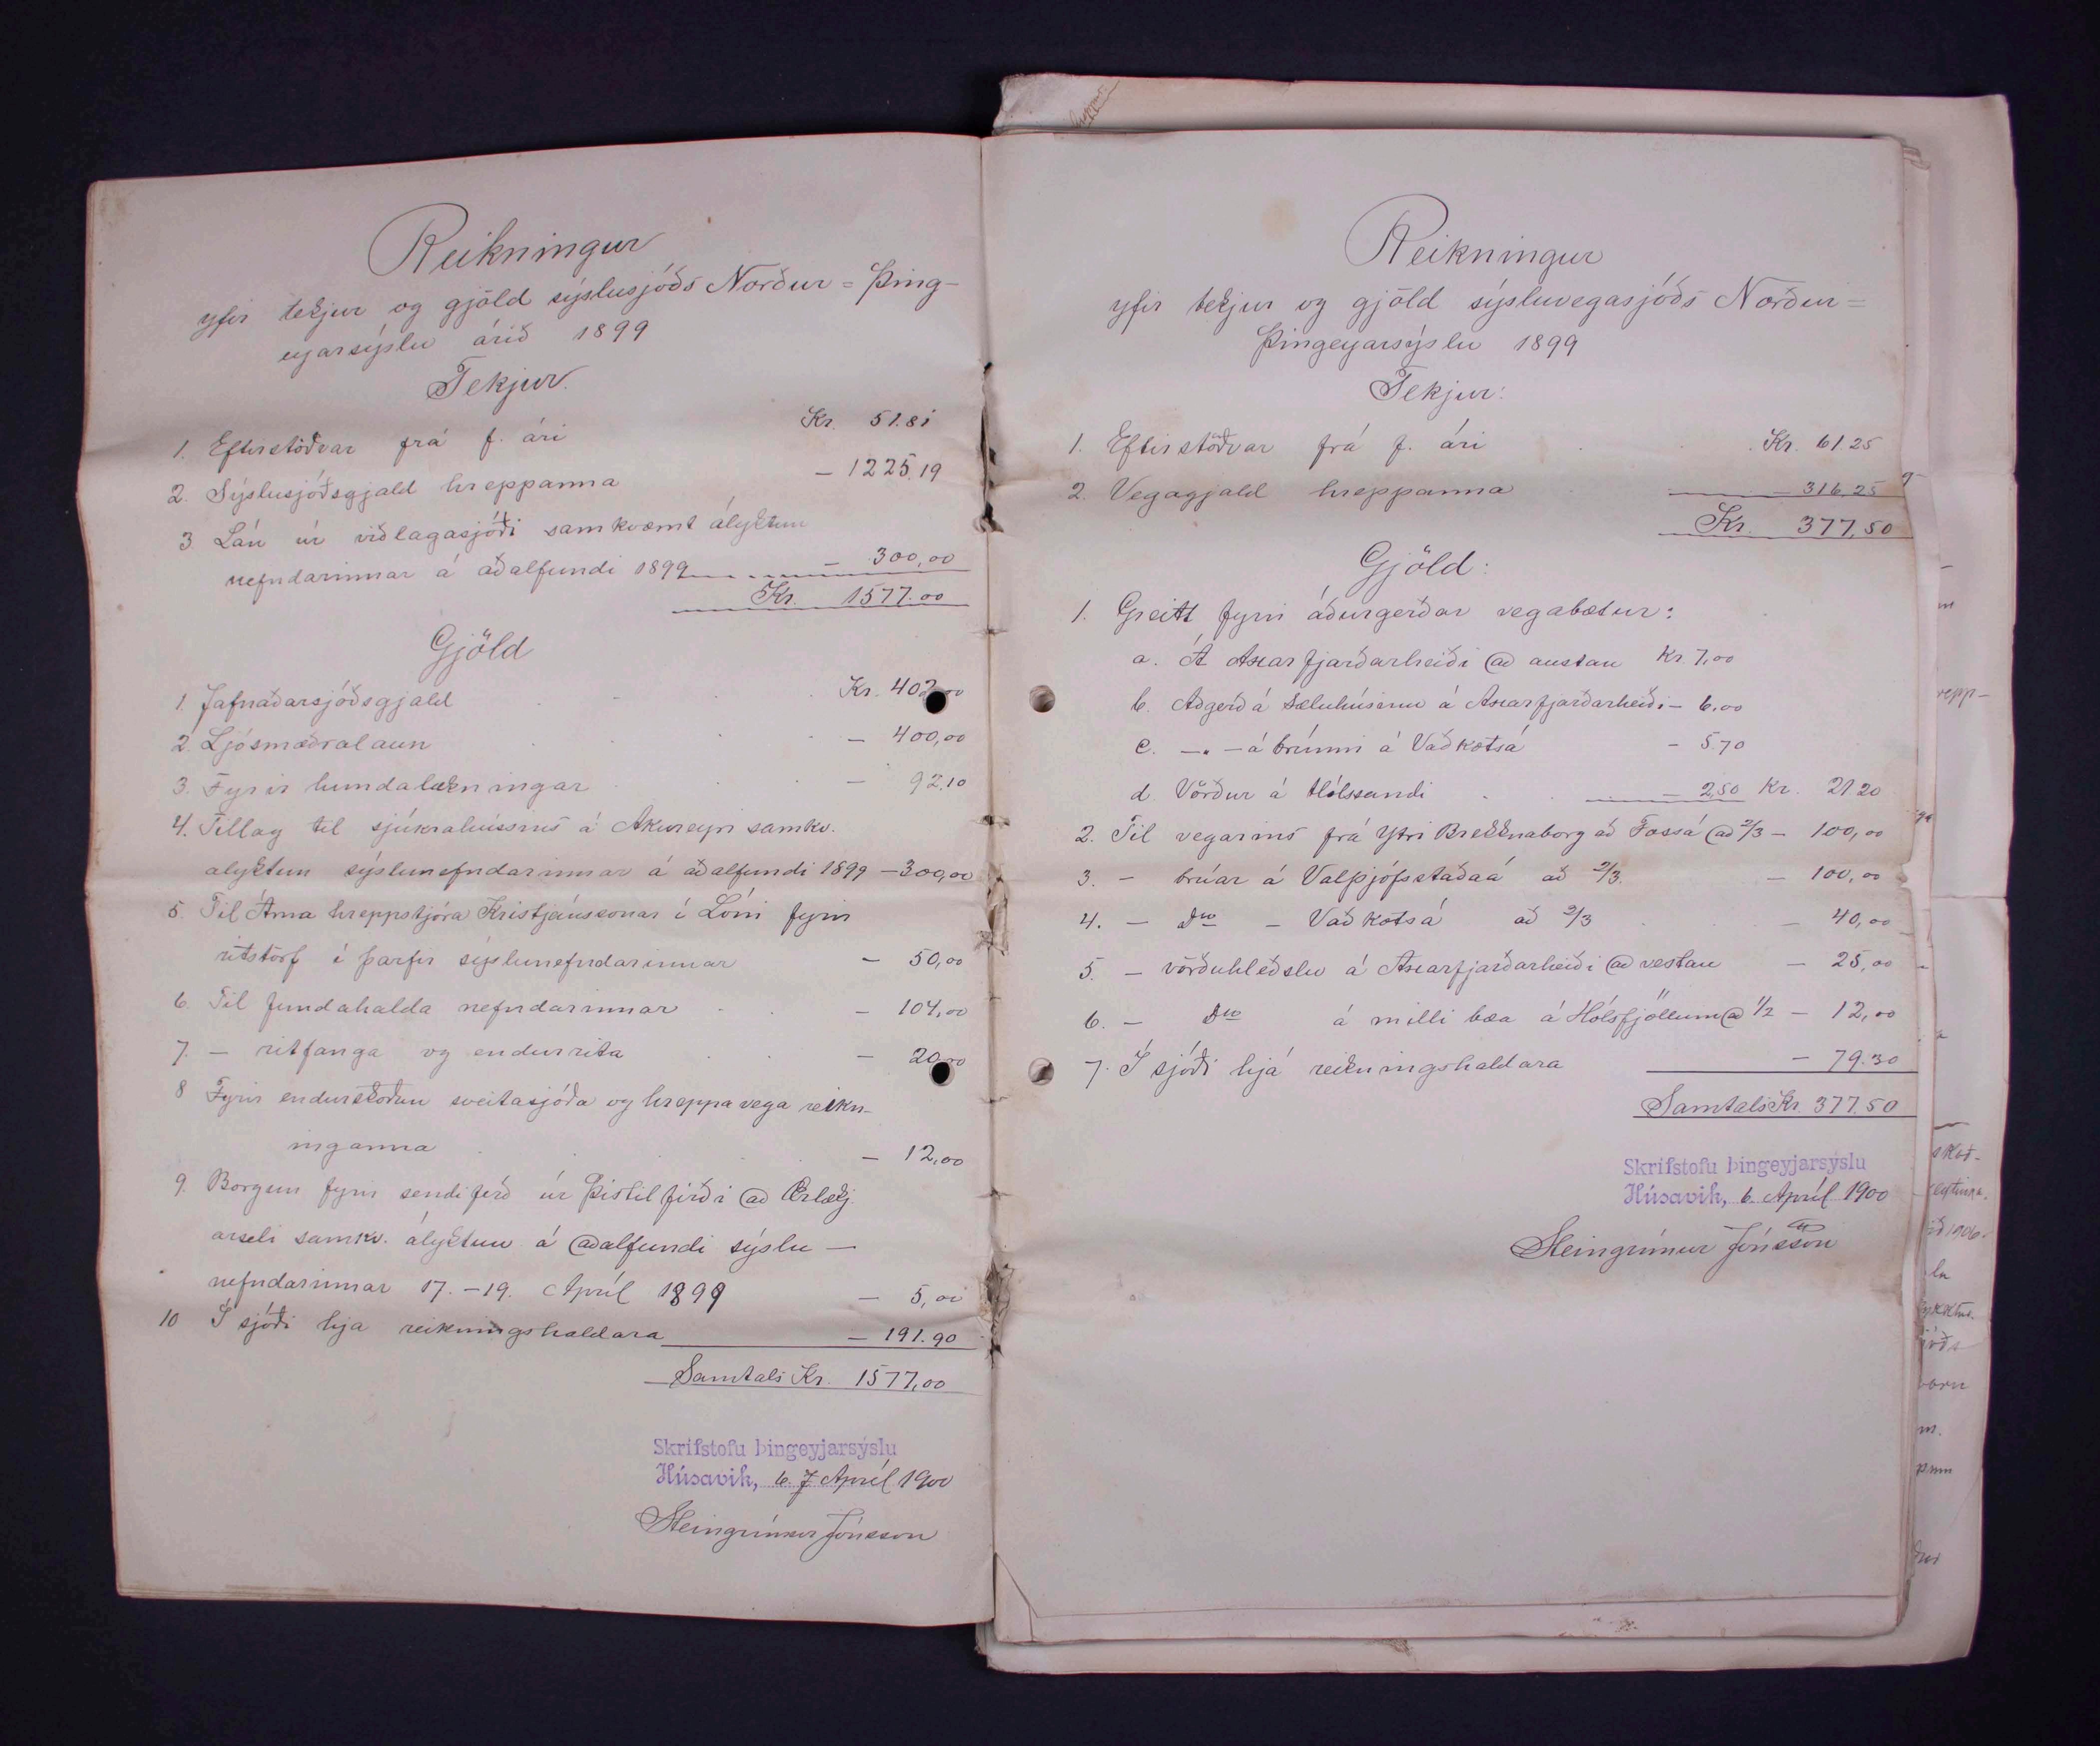 Reikningur
yfir tekjur og gjöld sýslusjóðs Norður=Þing-
eyarsýslu árið 1899
Tekjur.
1. Eftirstöðvar frá f. ári Kr. 51.81
2. Sýslusjóðsgjald hreppanna – 1225.19
3 Lán úr viðlagasjóði samkvæmt ályktun
nefndarinnar á aðalfundi 1899 – 300,00
Kr. 1577.00
Gjöld
1. Jafnaðarsjóðsgjald Kr. 402,00
2. Ljósmæðralaun – 400,00
3. Fyrir hundalækningar – 92,10
4. Tillag til sjúkrahússins á Akureyri samkv.
alyktun sýslunefndarinnar á aðalfundi 1899 – 300,00
5. Til Árna hreppstjóra Kristjánssonar í Lóni fyrir
ritstörf í þarfir sýslunefndarinnar – 50,00
6. Til fundahalda nefndarinnar – 104,00
7. – ritfanga og endurrita – 20,00
8 Fyrir endurskoðun sveitasjóða og hreppavega reikn-
inganna – 12,00
9. Borgun fyrir sendiferð úr Þistilfirði að Ærlækj
arseli samkv. ályktun á aðalfundi sýslu–
nefndarinnar 17.–19. Apríl 1899 – 5,00
10 Í sjóði hja reikningshaldara – 191.90
Samtals Kr. 1577,00
Skrifstofu Þingeyjarsýslu
Húsavík, 6. Apríl 1900
Steingrímur Jónsson
Reikningur
yfir tekjur og gjöld sýsluvegasjóðs Norður=
Þingeyarsýslu 1899
Tekjur:
1. Eftirstöðvar frá f. ári Kr. 61.25
2. Vegagjald hreppanna – 316,25
Kr. 377,50
Gjöld:
1. Greitt fyrir áðurgerðar vegabætur:
a. Á Axarfjarðarheiði að austan Kr. 7,00
b. Aðgerð á sæluhúsinu á Axarfjarðarheiði – 6.00
c. –„– á brúnni á Vaðkotsá – 5.70
d. Vörður á Hólssandi – 2,50 Kr. 21.20
2. Til vegarins frá Ytri Brekknaborg að Fossá að 2/3 – 100,00
3. – brúar á Valþjófsstaðaá að 2/3. – 100,00
4. – Do – Vaðkotsá að 2/3 – 40,00
5. – vörðuhleðslu á Axarfjarðarheiði að vestan – 25,00
6. – Do á milli bæa á Hólsfjöllum að 1/2 – 12,00
7. Í sjóði hjá reikningshaldara – 79.30
Samtals Kr. 377.50
Skrifstofu Þingeyjarsýslu
Húsavík, 6. Apríl 1900
Steingrímur Jónsson